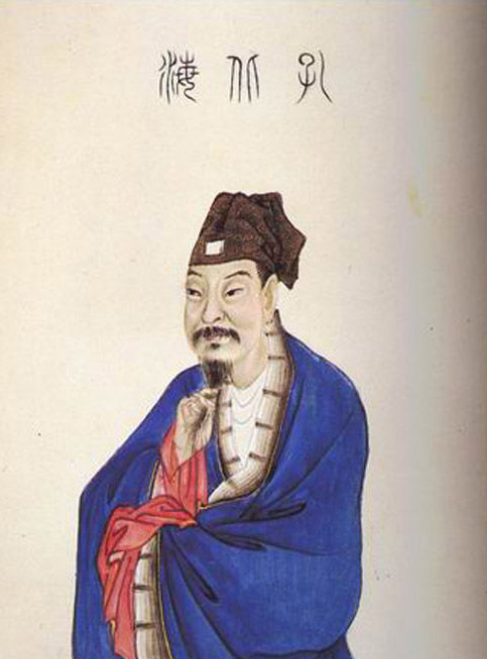 孔北海